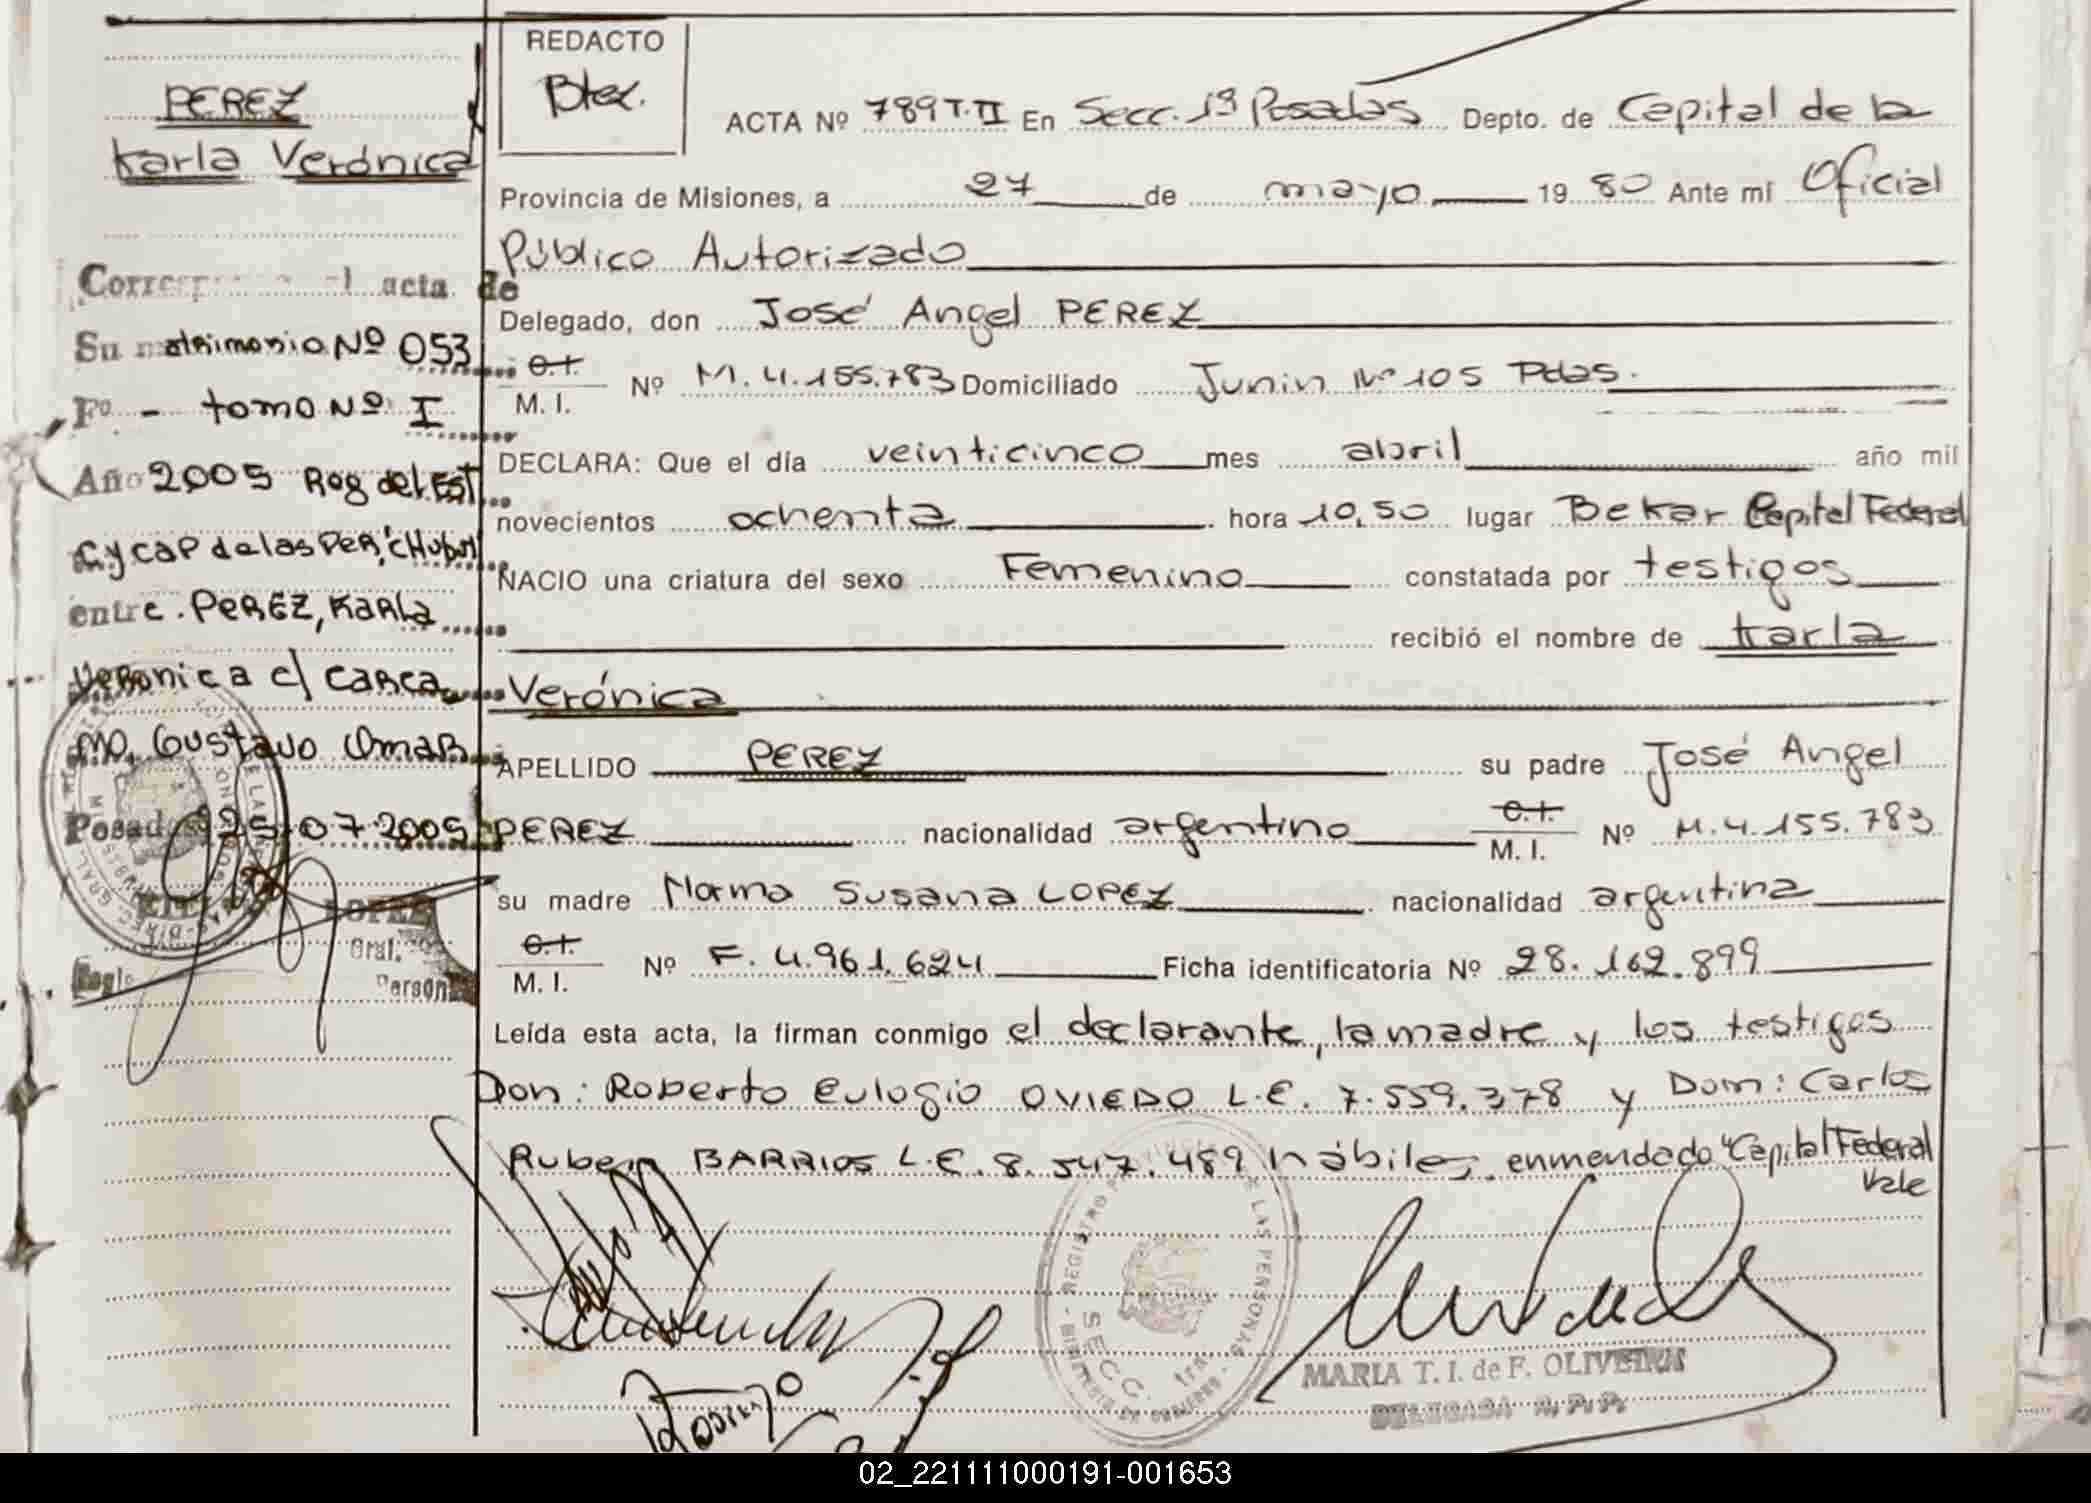 PEREZ
Karla Verónica
Corresp al acta de
Su matrimonio Nº 053
Fº - tomo Nº I
Año 2005 Reg del Est
C y Cap de las Per, Chubut
entre. PEREZ, Karla
Veronica c/ Carca
mo, Gustavo Omar
Posadas 25-07-2005
LOPEZ
Gral.
Person
REDACTO
ACTA Nº 789 T.II En Secc. 1ª Posadas Depto. de Capital de la
Provincia de Misiones, a 27 de mayo 19 80 Ante mí Oficial
Público Autorizado
Delegado, don José Angel PEREZ
C.I.
M. I. Nº M. 4.155.783 Domiciliado Junin Nº 105 Pdas.
DECLARA: Que el día veinticinco mes abril año mil
novecientos ochenta hora 10,50 lugar Bekar Capital Federal
NACIO una criatura del sexo Femenino constatada por testigos
recibió el nombre de Karla
Verónica
APELLIDO PEREZ su padre José Angel
PEREZ nacionalidad argentino C.I.
M. I. Nº M. 4.155.783
su madre Norma Susana LOPEZ nacionalidad argentina
C.I.
M. I. Nº F. 4.961.624 Ficha identificatoria Nº 28.162.899
Leída esta acta, la firman conmigo el declarante, la madre y los testigos
Don: Roberto Eulogio OVIEDO L.E. 7.559.378 y Dom: Carlos
Ruben BARRIOS L.E. 8.547.489 hábiles. enmendado "Capital Federal
Vale
REGISTRO PROVINCIAL DE LAS PERSONAS
SECC. 1ra
MARIA T. I. de F. OLIVEIRA
DELEGADA R. P. P.
02_221111000191-001653